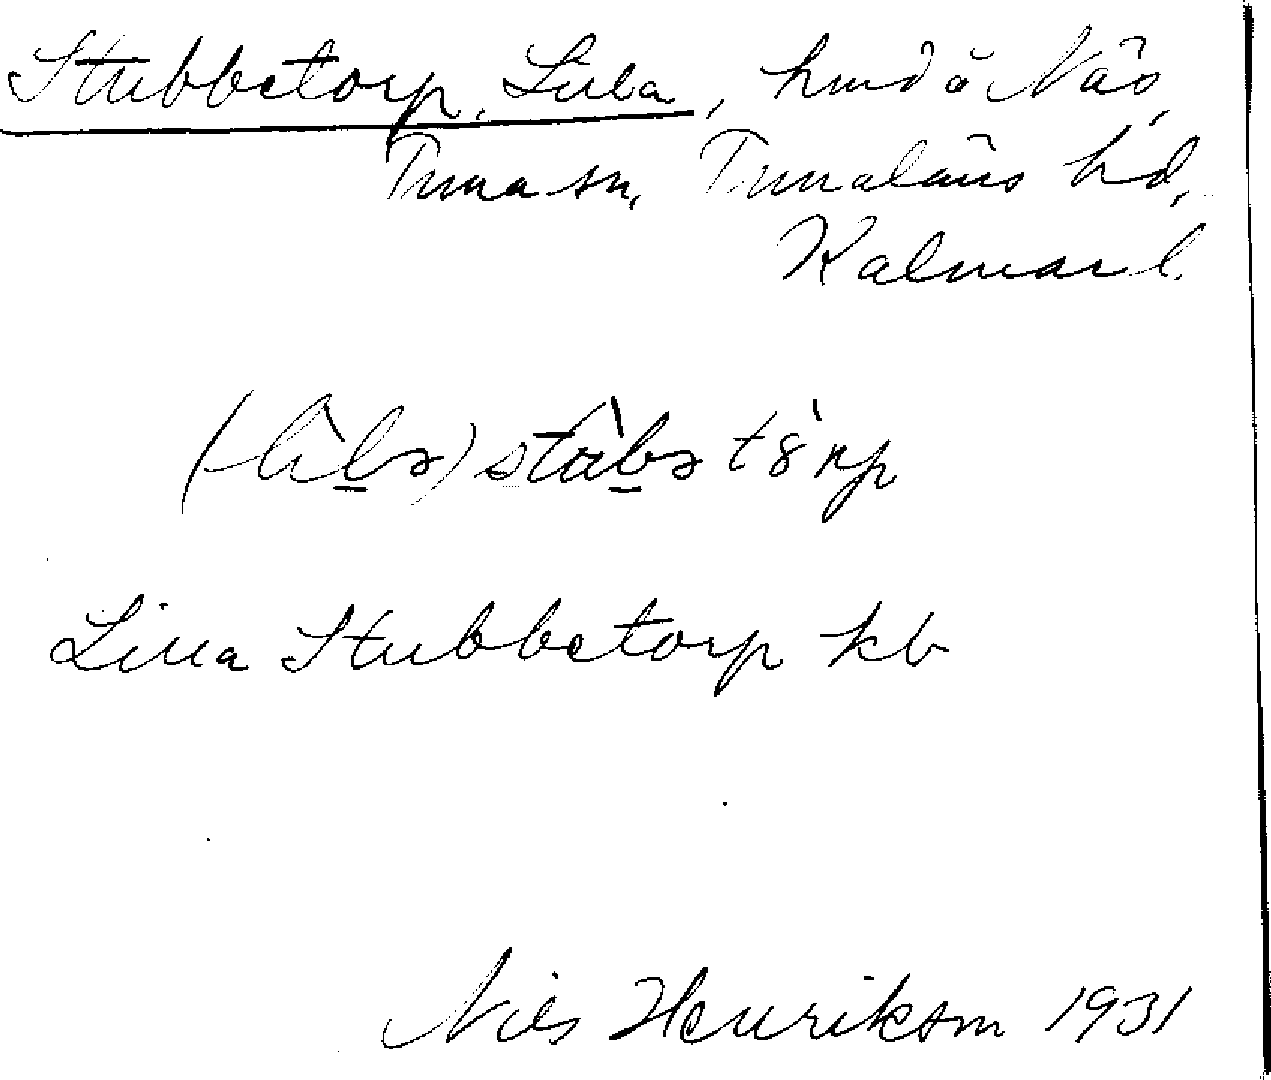 Stubbetorp, Lilla, hmd å Näs,
Tuna sn, Tunaläns hd,
Kalmar l.
Lilla Stubbetorp kb
Nils Henrikson 1931